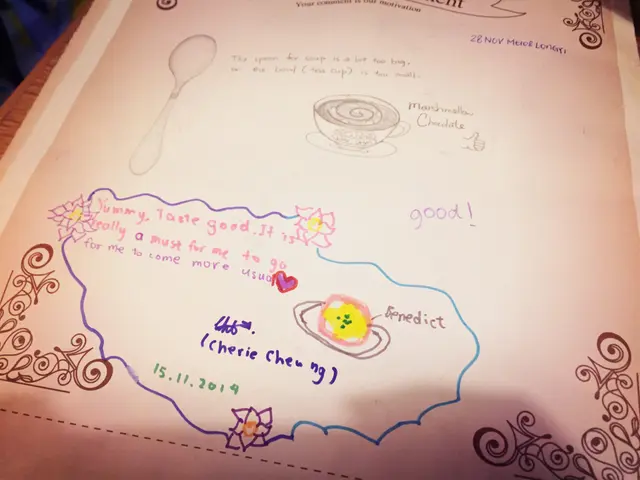 Your comment is our motivation
28 NOV
The spoon for soup is a bit too big,
or the bowl (tea cup) is too small.
Marshmallow
Chocolate
good!
Yummy, Taste good. It is
really a must for me to go
for me to come more usual
Benedict
(Cherie Cheung)
15.11.2014